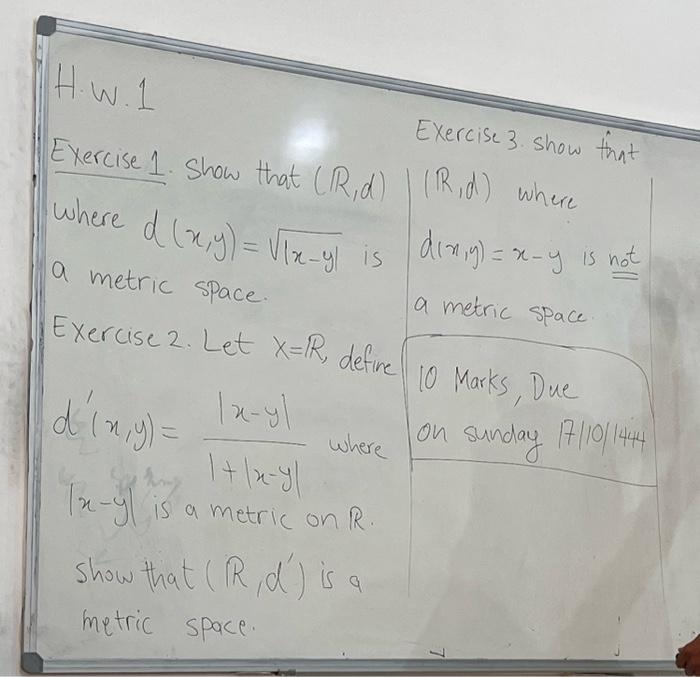 H.W.1
Exercise 1. Show that (ℝ,d)
where d(x,y)=√|x-y| is
a metric space.
Exercise 2. Let X=ℝ, define
d'(x,y)= |x-y| / 1+|x-y| where
|x-y| is a metric on ℝ.
show that (ℝ,d') is a
metric space.
Exercise 3. show that
(ℝ,d) where
d(x,y)=x-y is not
a metric space.
10 Marks, Due
on sunday 17/10/1444